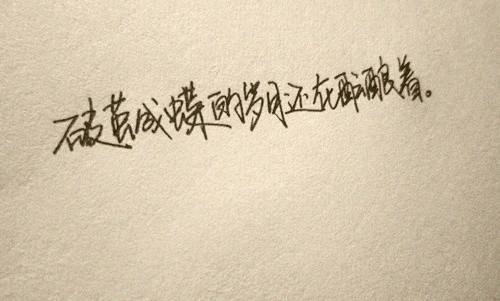 破茧成蝶的岁月还在酝酿着。